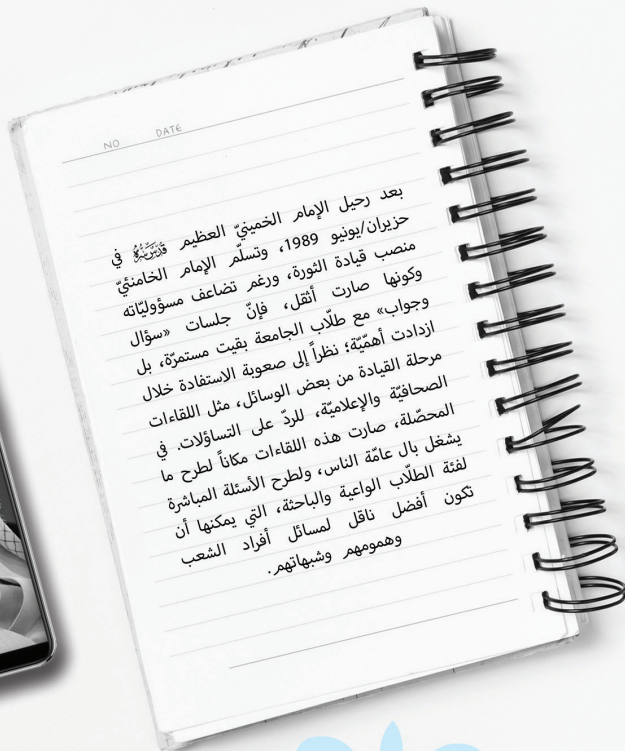 NO DATE
بعد رحيل الإمام الخمينيّ العظيم قدّس سرّه في
حزيران/يونيو 1989، وتسلّم الإمام الخامنئيّ
منصب قيادة الثورة، ورغم تضاعف مسؤوليّاته
وكونها صارت أثقل، فإنّ جلسات «سؤال
وجواب» مع طلّاب الجامعة بقيت مستمرّة، بل
ازدادت أهمّيّة؛ نظراً إلى صعوبة الاستفادة خلال
مرحلة القيادة من بعض الوسائل، مثل اللقاءات
الصحافيّة والإعلاميّة، للردّ على التساؤلات. في
المحصّلة، صارت هذه اللقاءات مكاناً لطرح ما
يشغل بال عامّة الناس، ولطرح الأسئلة المباشرة
لفئة الطلّاب الواعية والباحثة، التي يمكنها أن
تكون أفضل ناقل لمسائل أفراد الشعب
وهمومهم وشبهاتهم.